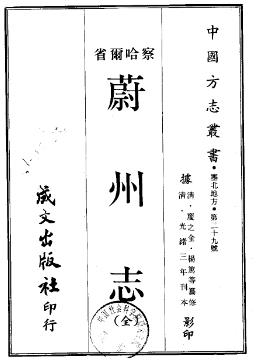 中國方志叢書·塞北地方·第二十九號
據清·慶之金·楊篤等纂修
清·光緒三年刊本影印
察哈爾省
蔚州志
(全)
成文出版社印行